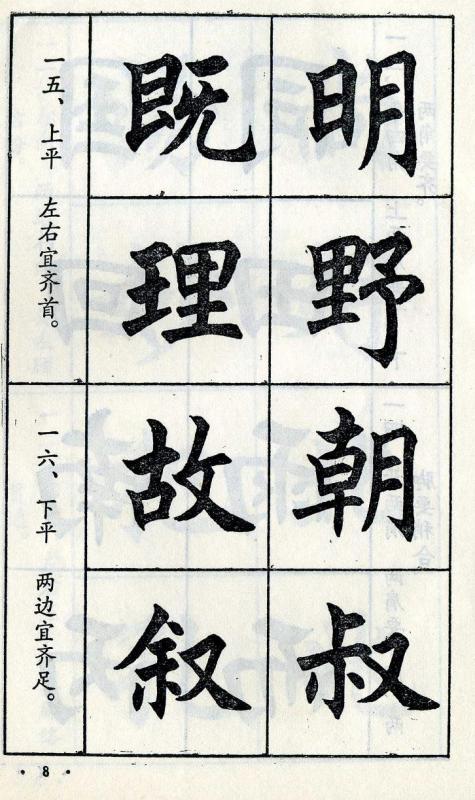 明野朝叔
既理故叙
一五、上平 左右宜齐首。
一六、下平 两边宜齐足。
· 8 ·